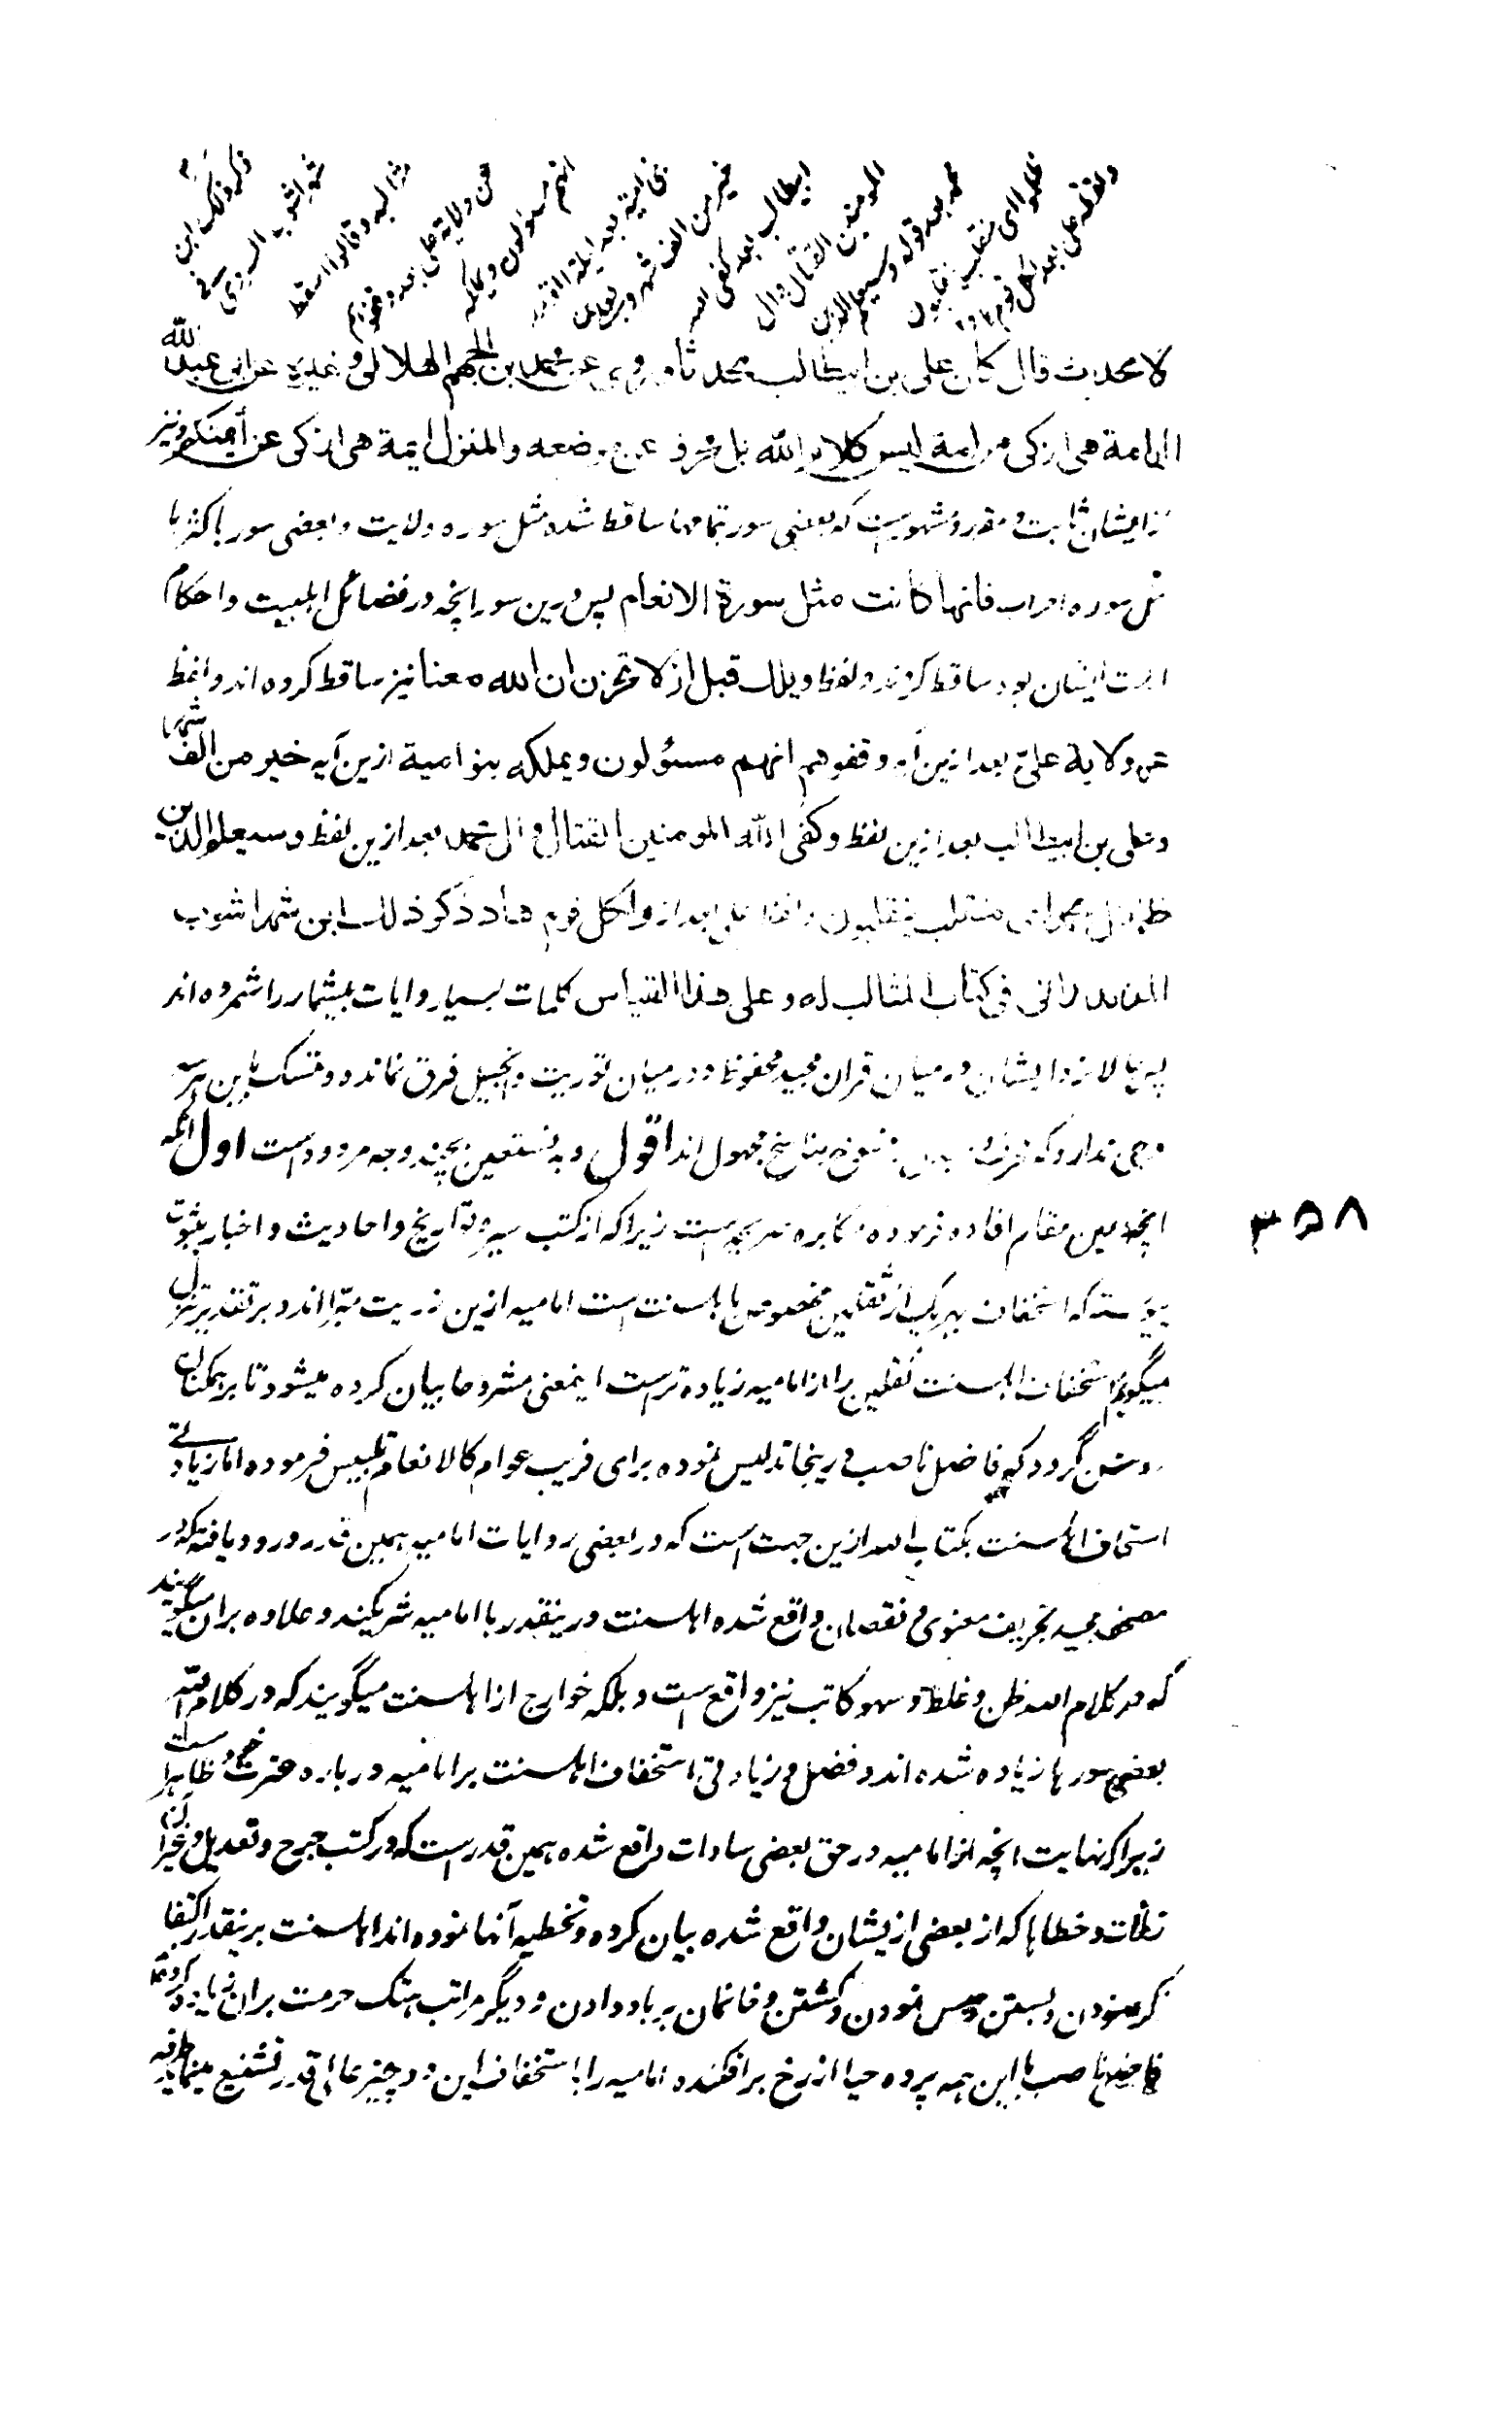 ولفظة علي بعد لكل قوم هاد
ظلموا اى منقلب ينقلبون
محمد بعد قوله وسيعلم الذين
المومنين القتال وال
ابيطالب بعد كفى الله
خير من الف شهر وعلي بن
بنى امية بعد ليلة القدر
انهم مسئولون ويملكه
عن ولاية على بعد وقفوهم
المثالب وقالوا اسقط
شهر اشوب السروي فى
ذكر ذلك ابن
ولا محدث قال كان على بن ابيطالب محدثا وروى عن محمد بن الجهم الهلالى وغيره عن ابى عبد الله
ان امة هى اربى من امة ليس كلام الله بل محرف عن موضعه والمنزل ائمة هى ازكى عن أئمتكم ونيز
نزد ايشان ثابت و مقرر و مشهور ست كه بعضى سور بتمامها ساقط شده مثل سوره ولايت و بعضى سور باكثرها
مثل سوره احزاب فانها كانت مثل سورة الانعام پس درين سور انچه در فضائل اهلبيت و احكام
امامت ايشان بود ساقط كردند و لفظ ويلك قبل از لا تحزن ان الله معنا نيز ساقط كرده اند و لفظ
عن ولاية علىّ بعد ازين آيه وقفوهم انهم مسئولون ويملكه بنو امية ازين آيه خير من الف شهر
و على بن ابيطالب بعد ازين لفظ وكفى الله المومنين القتال و آل محمد بعد ازين لفظ وسيعلم الذين
ظلموا اى منقلب ينقلبون و لفظ على بعد از ولكل قوم هاد ذكر ذلك ابن شهر اشوب
المازندرانى فى كتاب المثالب له و على هذا القياس كلمات بسيار و ايات بيشمار را شمرده اند
پس حالا نزد ايشان در ميان قران مجيد محفوظ و در ميان توريت و انجيل فرق نمانده و تمسك باين هر سه
وجهى ندارد كه محرف منسوخ بناسخ مجهول اند اقول و به نستعين بچند وجه مردود است اول انكه
انچه درين مقام افاده فرموده مكابره صريحه است زيرا كه از كتب سير و تواريخ و احاديث و اخبار بثبوت
پيوسته كه استخفاف بهر يك از ثقلين مخصوص باهلسنت است اماميه ازين مبرّا اند و بر تقدير تنزل
ميگويم استخفاف اهلسنت ثقلين را از اماميه زياده تر است اينمعنى مشروحا بيان كرده ميشود تا بر همكنان
روشن گردد كه فاضل ناصب درينجا تدليس نموده براى فريب عوام كالانعام تلبيس فرموده اما زيادتى
استخفاف اهلسنت بكتاب الله ازين جهت است كه در بعضى روايات اماميه همين قدر ورود يافته كه در
مصحف مجيد تحريف معنوى و نقصان واقع شده اهلسنت درينقدر با اماميه شريكند و علاوه بران ميگويند
كه در كلام الله لحن و غلط و سهو كاتب نيز واقع است و بلكه خوارج از اهلسنت ميگويند كه در كلام الله
بعضى سورها زياده شده اند و فضل و زيادتى استخفاف اهلسنت بر اماميه در باره عترت خود ظاهر است
زيرا كه نهايت انچه از اماميه در حق بعضى سادات واقع شده همين قدر است كه در كتب جرح و تعديل و غير آن
زلّات و خطاها كه از بعضى ازيشان واقع شده بيان كرده و تخطيه آنها نموده اند اهلسنت برينقدر اكتفا
نكرده و بستن و حبس نمودن و كشتن و خانمان بر باد دادن و ديگر مراتب هتك حرمت بران زياده كردند
فاضل ناصب با اين همه پرده حيا از رخ بر افكنده اماميه را باستخفاف اين دو چيز عالى قدر تشنيع مينمايد
۳۵۸